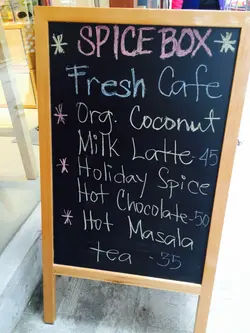 * SPICE BOX *
Fresh Cafe
* Org. Coconut
Milk Latte-45
* Holiday Spice
Hot Chocolate-50
* Hot Masala
tea -35